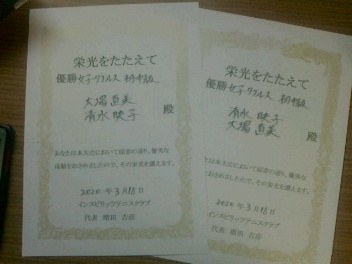 栄光をたたえて
優勝 女子ダブルス 初中級
大場 直美
清水 映子
殿
あなたは本大会において頭書の通り、優秀な
成績をおさめましたので、その栄光を讃えます。
2020 年 3月18日
インスピリッツテニスクラブ
代表 増田 吉彦
栄光をたたえて
優勝 女子ダブルス 初中級
清水 映子
大場 直美
殿
は本大会において頭書の通り、優秀な
おさめましたので、その栄光を讃えます。
2020 年 3月18日
インスピリッツテニスクラブ
代表 増田 吉彦